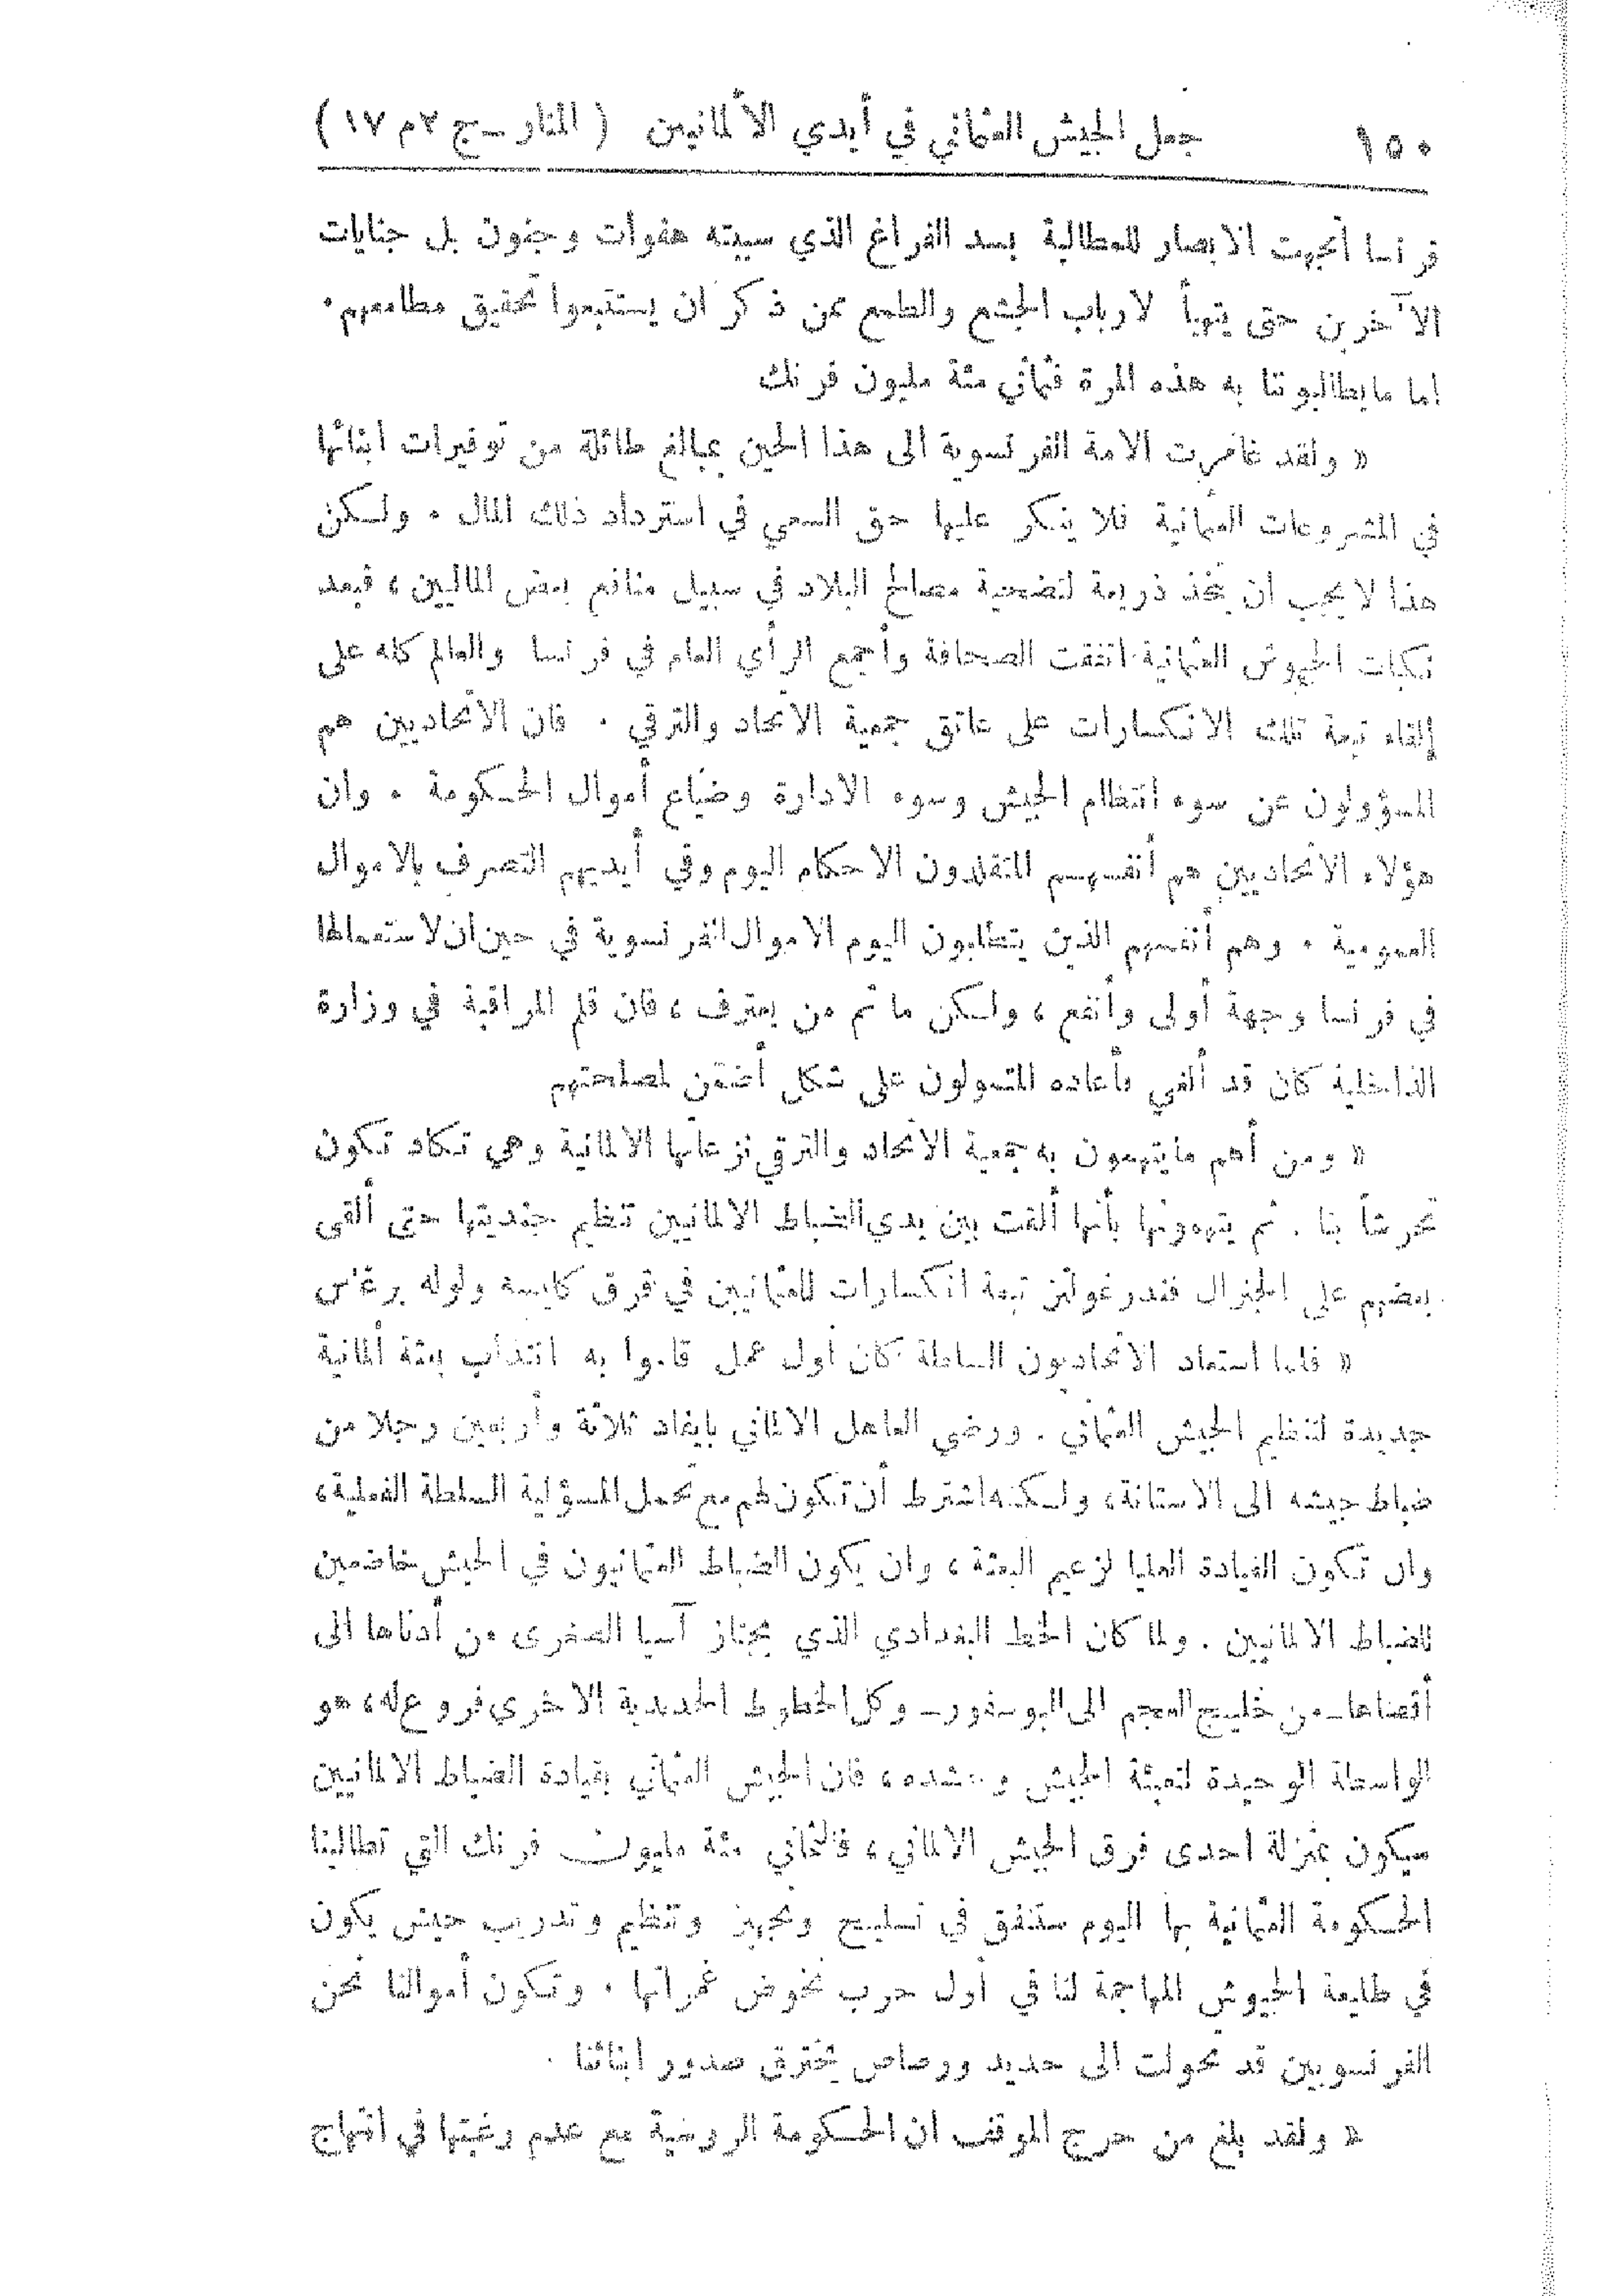 ١٥٠ جعل الجيش العثماني في أيدي الألمانيين ( المنار ــ ج ٢ م ١٧ )
فرنسا أتجهت الابصار للمطالبة بسد الفراغ الذي سببته هفوات وجنون بل جنايات
الآخرين حتى يتهيأ لارباب الجشع والطمع من ذكر ان يستتبعوا تحقيق مطامعهم .
اما ما يطالبوننا به هذه المرة فثماني مئة مليون فرنك
« ولقد غامرت الامة الفرنسوية الى هذا الحين بمبالغ طائلة من توفيرات ابنائها
في المشروعات العثمانية فلا ينكر عليها حق السعي في استرداد ذلك المال . ولكن
هذا لا يجب ان يتخذ ذريعة لتضحية مصالح البلاد في سبيل منافع بعض الماليين ، فبعد
نكبات الجيوش العثمانية اتفقت الصحافة وأجمع الرأي العام في فرنسا والعالم كله على
إلقاء تبعة تلك الانكسارات على عاتق جمعية الاتحاد والترقي . فان الاتحاديين هم
المسؤولون عن سوء انتظام الجيش وسوء الادارة وضياع أموال الحكومة . وان
هؤلاء الاتحاديين هم أنفسهم المتقلدون الاحكام اليوم وفي أيديهم التصرف بالاموال
العمومية . وهم أنفسهم الذين يتطلبون اليوم الاموال الفرنسوية في حين ان لاستعمالها
في فرنسا وجهة أولى وأنفع ، ولكن ما ثم من يعترف ، فان قلم المراقبة في وزارة
الداخلية كان قد ألغي فأعاده المتمولون على شكل أضمن لمصلحتهم
« ومن أهم ما يتهمون به جمعية الاتحاد والترقي نزعاتها الالمانية وهي تكاد تكون
تحرشاً بنا . ثم يتهمونها بأنها ألقت بين يدي الضباط الالمانيين تنظيم جنديتها حتى ألقى
بعضهم على الجنرال فندرغولتز تبعة انكسارات للعثمانيين في قرق كليسه ولوله برغس
« فلما استعاد الاتحاديون السلطة كان أول عمل قاموا به انتداب بعثة ألمانية
جديدة لتنظيم الجيش العثماني . ورضي العاهل الالماني بايفاد ثلاثة وأربعين رجلا من
ضباط جيشه الى الاستانة ، ولكنه اشترط أن تكون لهم مع تحمل المسؤلية السلطة الفعلية ،
وان تكون القيادة العليا لزعيم البعثة ، وان يكون الضباط العثمانيون في الجيش خاضعين
للضباط الالمانيين . ولما كان الخط البغدادي الذي يجتاز آسيا الصغرى من أدناها الى
أقصاها ــ من خليج العجم الى البوسفور ــ وكل الخطوط الحديدية الاخرى فروع له ، هو
الواسطة الوحيدة لتعبئة الجيش وحشده ، فان الجيش العثماني بقيادة الضباط الالمانيين
سيكون بمنزلة احدى فرق الجيش الالماني ، فالثماني مئة مليون فرنك التي تطالبنا
الحكومة العثمانية بها اليوم ستنفق في تسليح وتجهيز وتنظيم وتدريب جيش يكون
في طليعة الجيوش المهاجمة لنا في أول حرب نخوض غمراتها . وتكون أموالنا نحن
الفرنسويين قد تحولت الى حديد ورصاص يخترق صدور ابنائنا .
« ولقد بلغ من حرج الموقف ان الحكومة الروسية مع عدم رغبتها في انتهاج